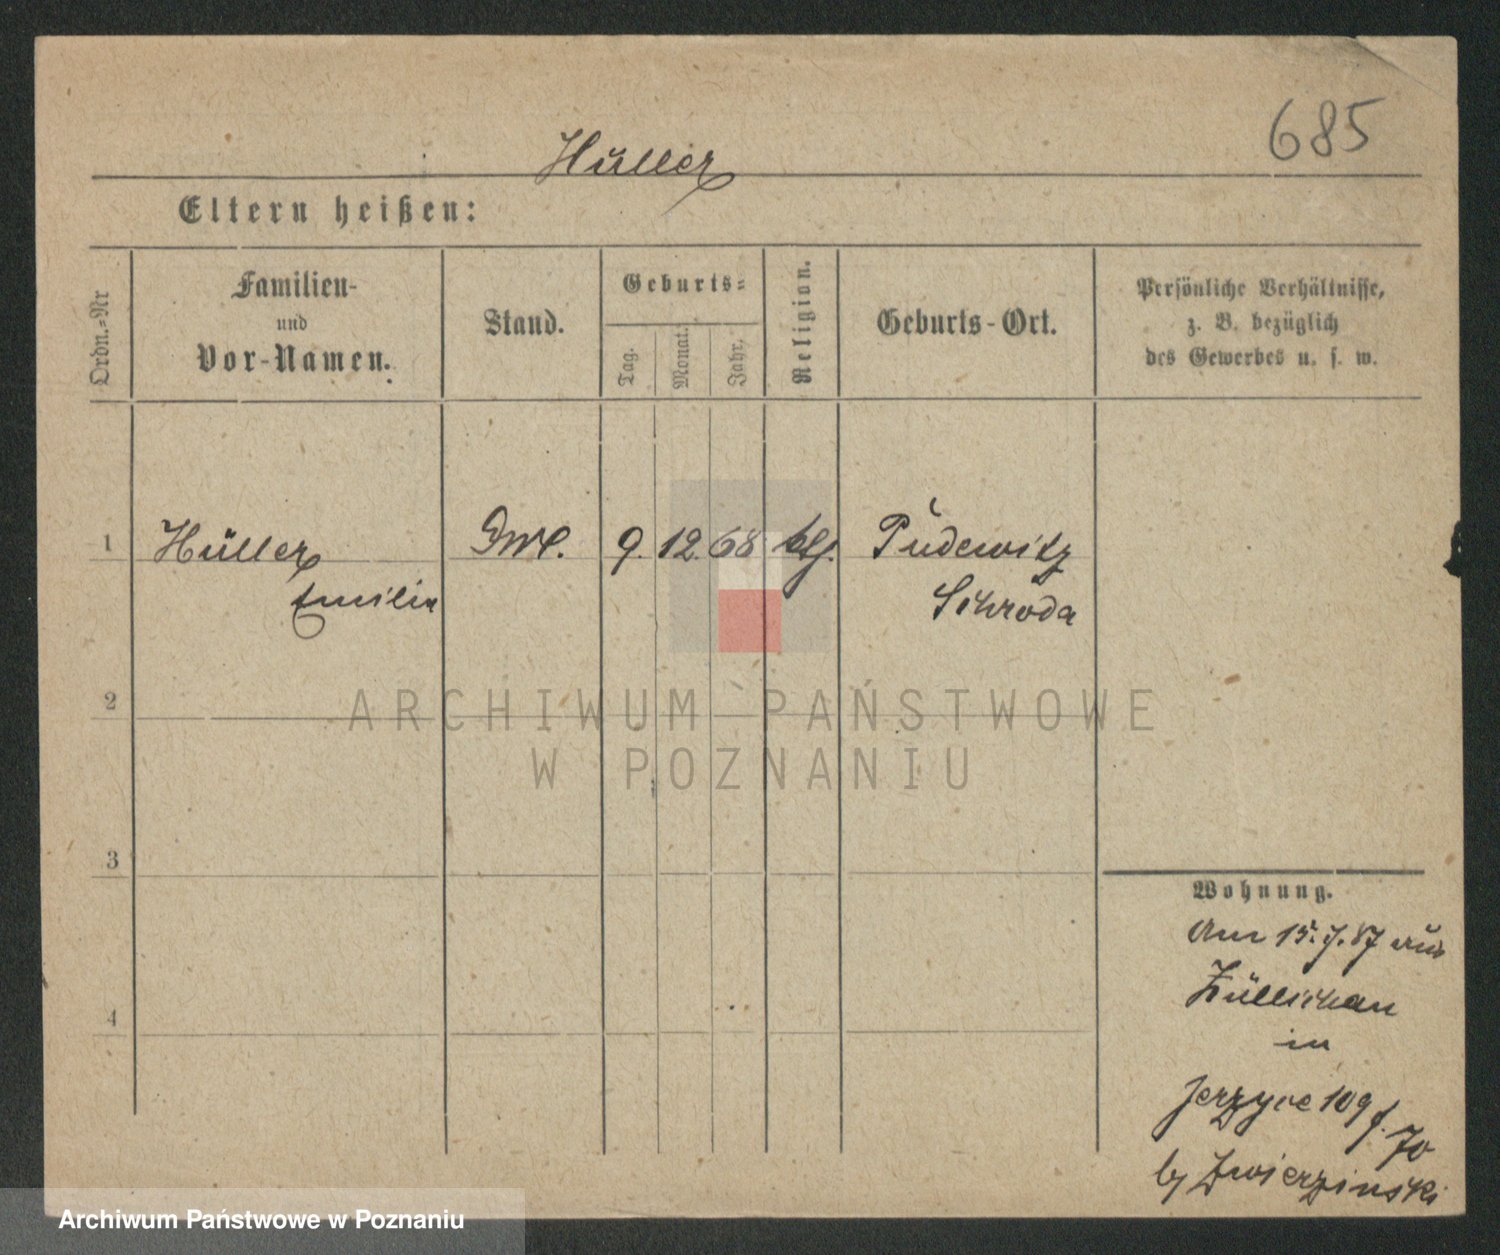 685
Hüller
Eltern heißen:
Ordn.=Nr
Familien-
und
Vor-Namen.
Stand.
Geburts=
Tag.
Monat.
Jahr.
Religion.
Geburts-Ort.
Persönliche Verhältnisse,
z. B. bezüglich
des Gewerbes u. s. w.
1
Hüller
Emilie
9. 12. 68
Pudewitz
Schroda
2
3
4
Wohnung.
Am 15. 7. 87 aus
Züllichau
in
Jerzyce 109 f. 70
by Zwierzinski
ARCHIWUM PAŃSTWOWE
W POZNANIU
Archiwum Państwowe w Poznaniu